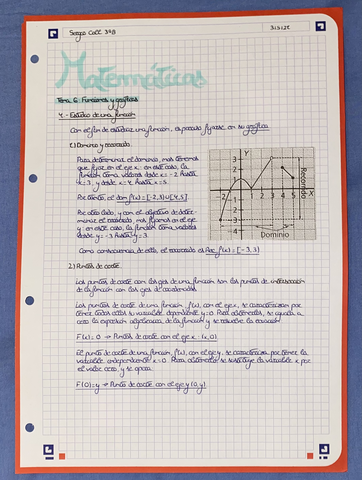 Sergio Coll 3ºB
Matemáticas
Tema 6: Funciones y gráficas
4.- Estudio de una función
Con el fin de estudiar una función, es preciso fijarse en su gráfica
1) Dominio y recorrido
Para determinar el dominio, nos tenemos
que fijar en el eje x: en este caso, la
función toma valores desde x=-2 hasta
x=3, y desde x=4 hasta x=5.
Por tanto, el dom f(x)=[-2,3)U[4,5]
Por otro lado, y con el objetivo de deter-
minar el recorrido, nos fijamos en el eje
y: en este caso, la función toma valores
desde y=-3 hasta y=3.
Como consecuencia de ello, el recorrido es Rec f(x)=[-3,3)
Y
3
2
1
-2 -1
1 2 3 4 5 X
Recorrido
Dominio
2) Puntos de corte
Los puntos de corte con los ejes de una función son los puntos de intersección
de la función con los ejes de coordenadas
Los puntos de corte de una función f(x), con el eje x, se caracterizan por
tener todos ellos su variable dependiente y=0. Para obtenerlos, se iguala a
cero la expresión algebraica de la función y se resuelve la ecuación
F(x)=0 → Puntos de corte con el eje x (x,0)
El punto de corte de una función f(x), con el eje y, se caracteriza por tener la
variable independiente x=0. Para obtenerlo se sustituye la variable x por
el valor cero, y se opera
F(0)=y → Punto de corte con el eje y (0,y)